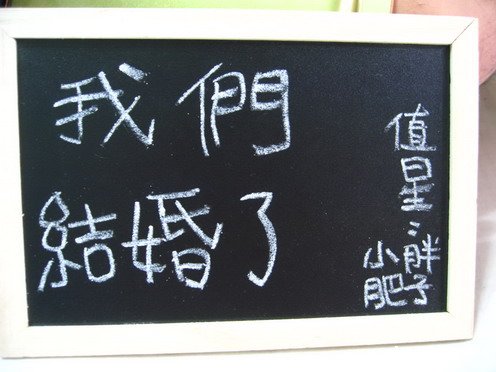 我們
結婚了
值星:胖子
小肥